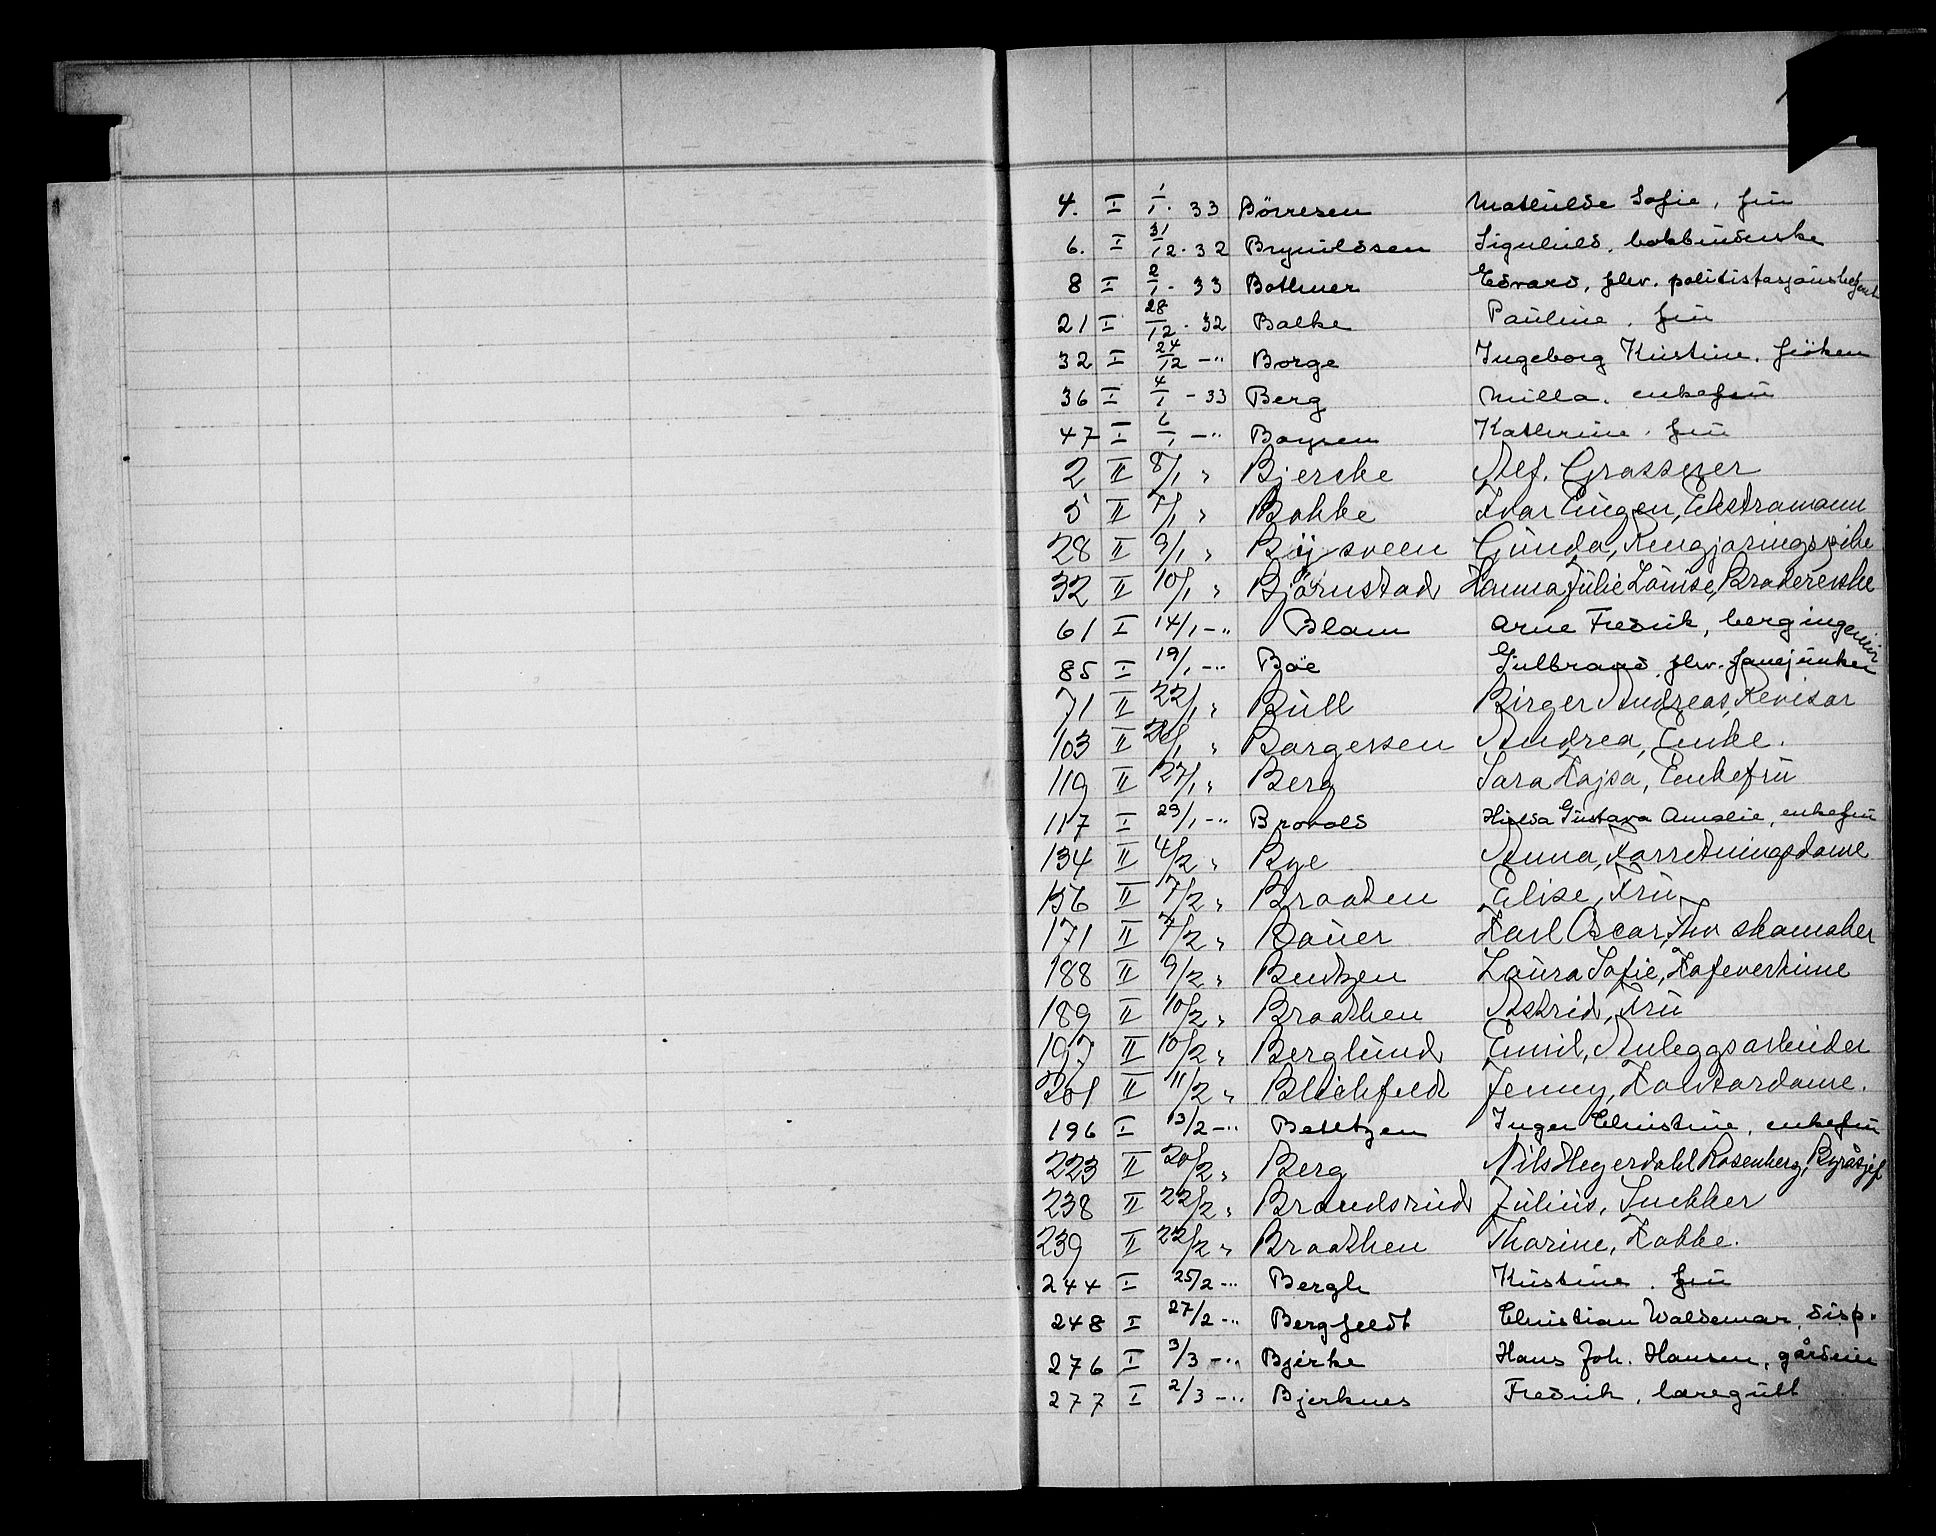 4. I 1/1 · 33 Börresen Mathilde Sofie, frü
6. I 31/12 · 32 Brynildsen Signhild, bokbinderske
8 I 2/1 - 33 Bothner Edvard, fhv. politistasjonsbetjent
21 I 28/12 · 32 Balke Pauline, frü
32 I 24/12 -" Borge Ingeborg Kristine, fröken
36 I 4/1 - 33 Berg Milla, enkefrü
47 I 6/1 -" Boysen Kathrine, frü
2 II 8/1 " Bjercke Alf. Grosserer
5 II 7/1 " Bakke Ivar Eugen, Ekstramann
28 II 9/1 " Böjsveen Gunda, Rengjøringspike
32 II 10/1 " Björnstad Hanna Julie Louise, Brodererske
61 I 14/1 -" Blom Arne Fredrik, bergingeniör
85 I 19/1 -" Böe Gulbrand, fhv. fanejunker
71 II 22/1 " Büll Birger Andreas, Revisor
103 II 26/1 " Borgersen Andrea, Enke.
119 II 27/1 " Berg Sara Kajsa, Enkefrü
117 I 29/1 -" Brovold Hilda Gustava Amalie, enkefrü
134 II 4/2 " Bye Anna, Forretningsdame
156 II 7/2 " Braaten Elise, Frü
171 II 7/2 " Bauer Karl Oscar, Fhv skomaker
188 II 9/2 " Bentzen Laura Sofie, Kafevertinne
189 II 10/2 " Braathen Astrid, Frü
197 II 10/2 " Berglund Emil, Anleggsarbeider
201 II 11/2 " Blichfeld Jenny, Kontordame.
196 I 13/2 -" Beutzen Inger Christine, enkefrü
223 II 20/2 " Berg Nils Hegerdahl Rosenberg, Byråsjef
238 II 22/2 " Brandsrud Julius, Snekker
239 II 22/2 " Braathen Thorine, Kokke.
244 I 25/2 -" Bergh Kristine, frü
248 I 27/2 -" Bergfeldt Christian Waldemar, disp.
276 I 3/3 -" Bjerke Hans Joh. Hansen, gårdeier
277 I 2/3 -" Bjerknes Fredrik, læregutt